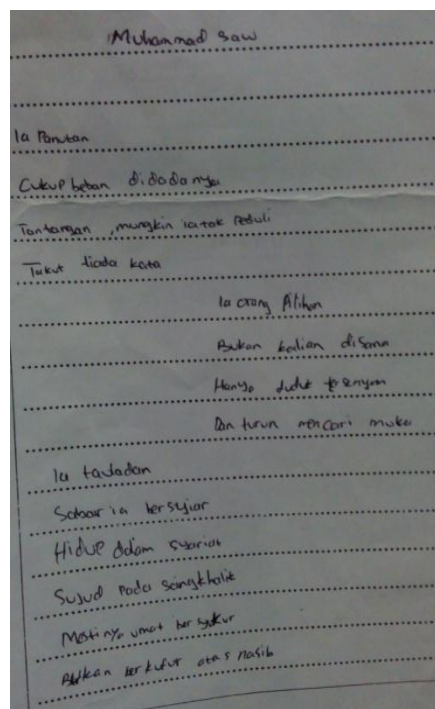 Muhammad saw
Ia Panutan
Cukup beban didadanya
Tantangan, mungkin ia tak Peduli
Takut tiada kata
Ia orang Pilihan
Bukan kalian disana
Hanya duduk tersenyum
Dan turun mencari muka
Ia tauladan
Sabar ia bersyiar
Hidup dalam syariat
Sujud Pada sangkhalik
Mestinya umat bersyukur
Bukan berkufur atas nasib